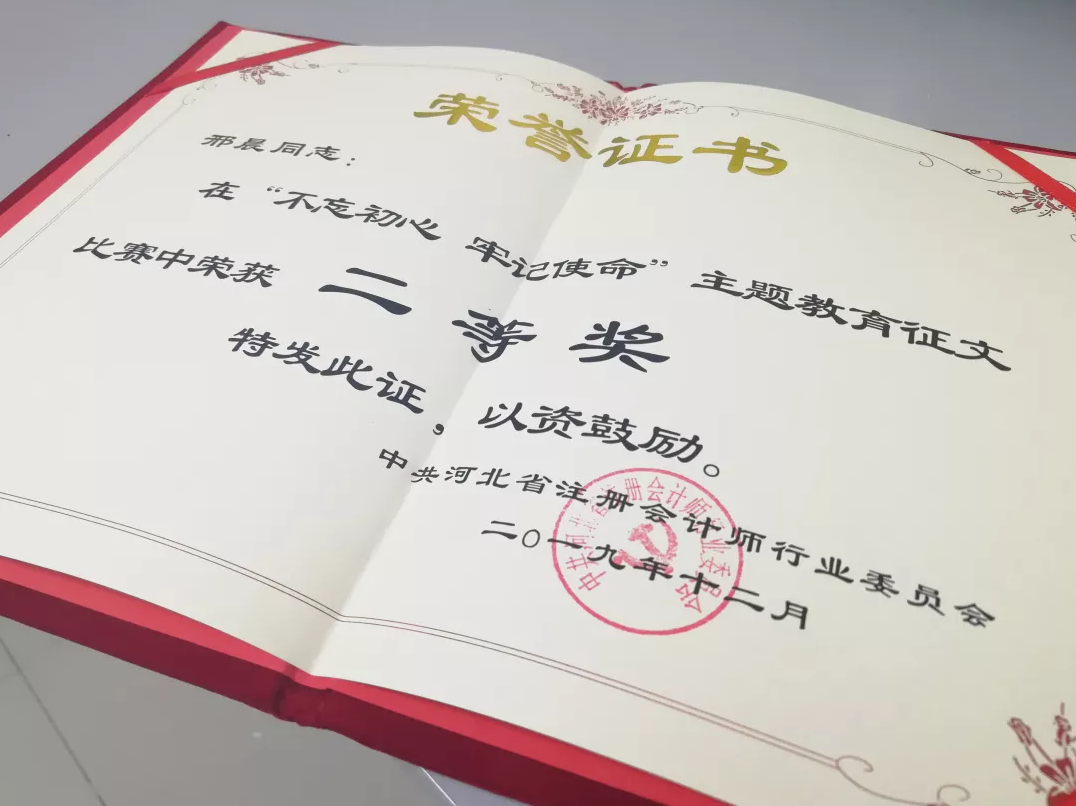 荣誉证书
邢晨同志：
在“不忘初心 牢记使命”主题教育征文
比赛中荣获 二等奖
特发此证，以资鼓励。
中共河北省注册会计师行业委员会
二〇一九年十二月
中共河北省注册会计师行业委员会